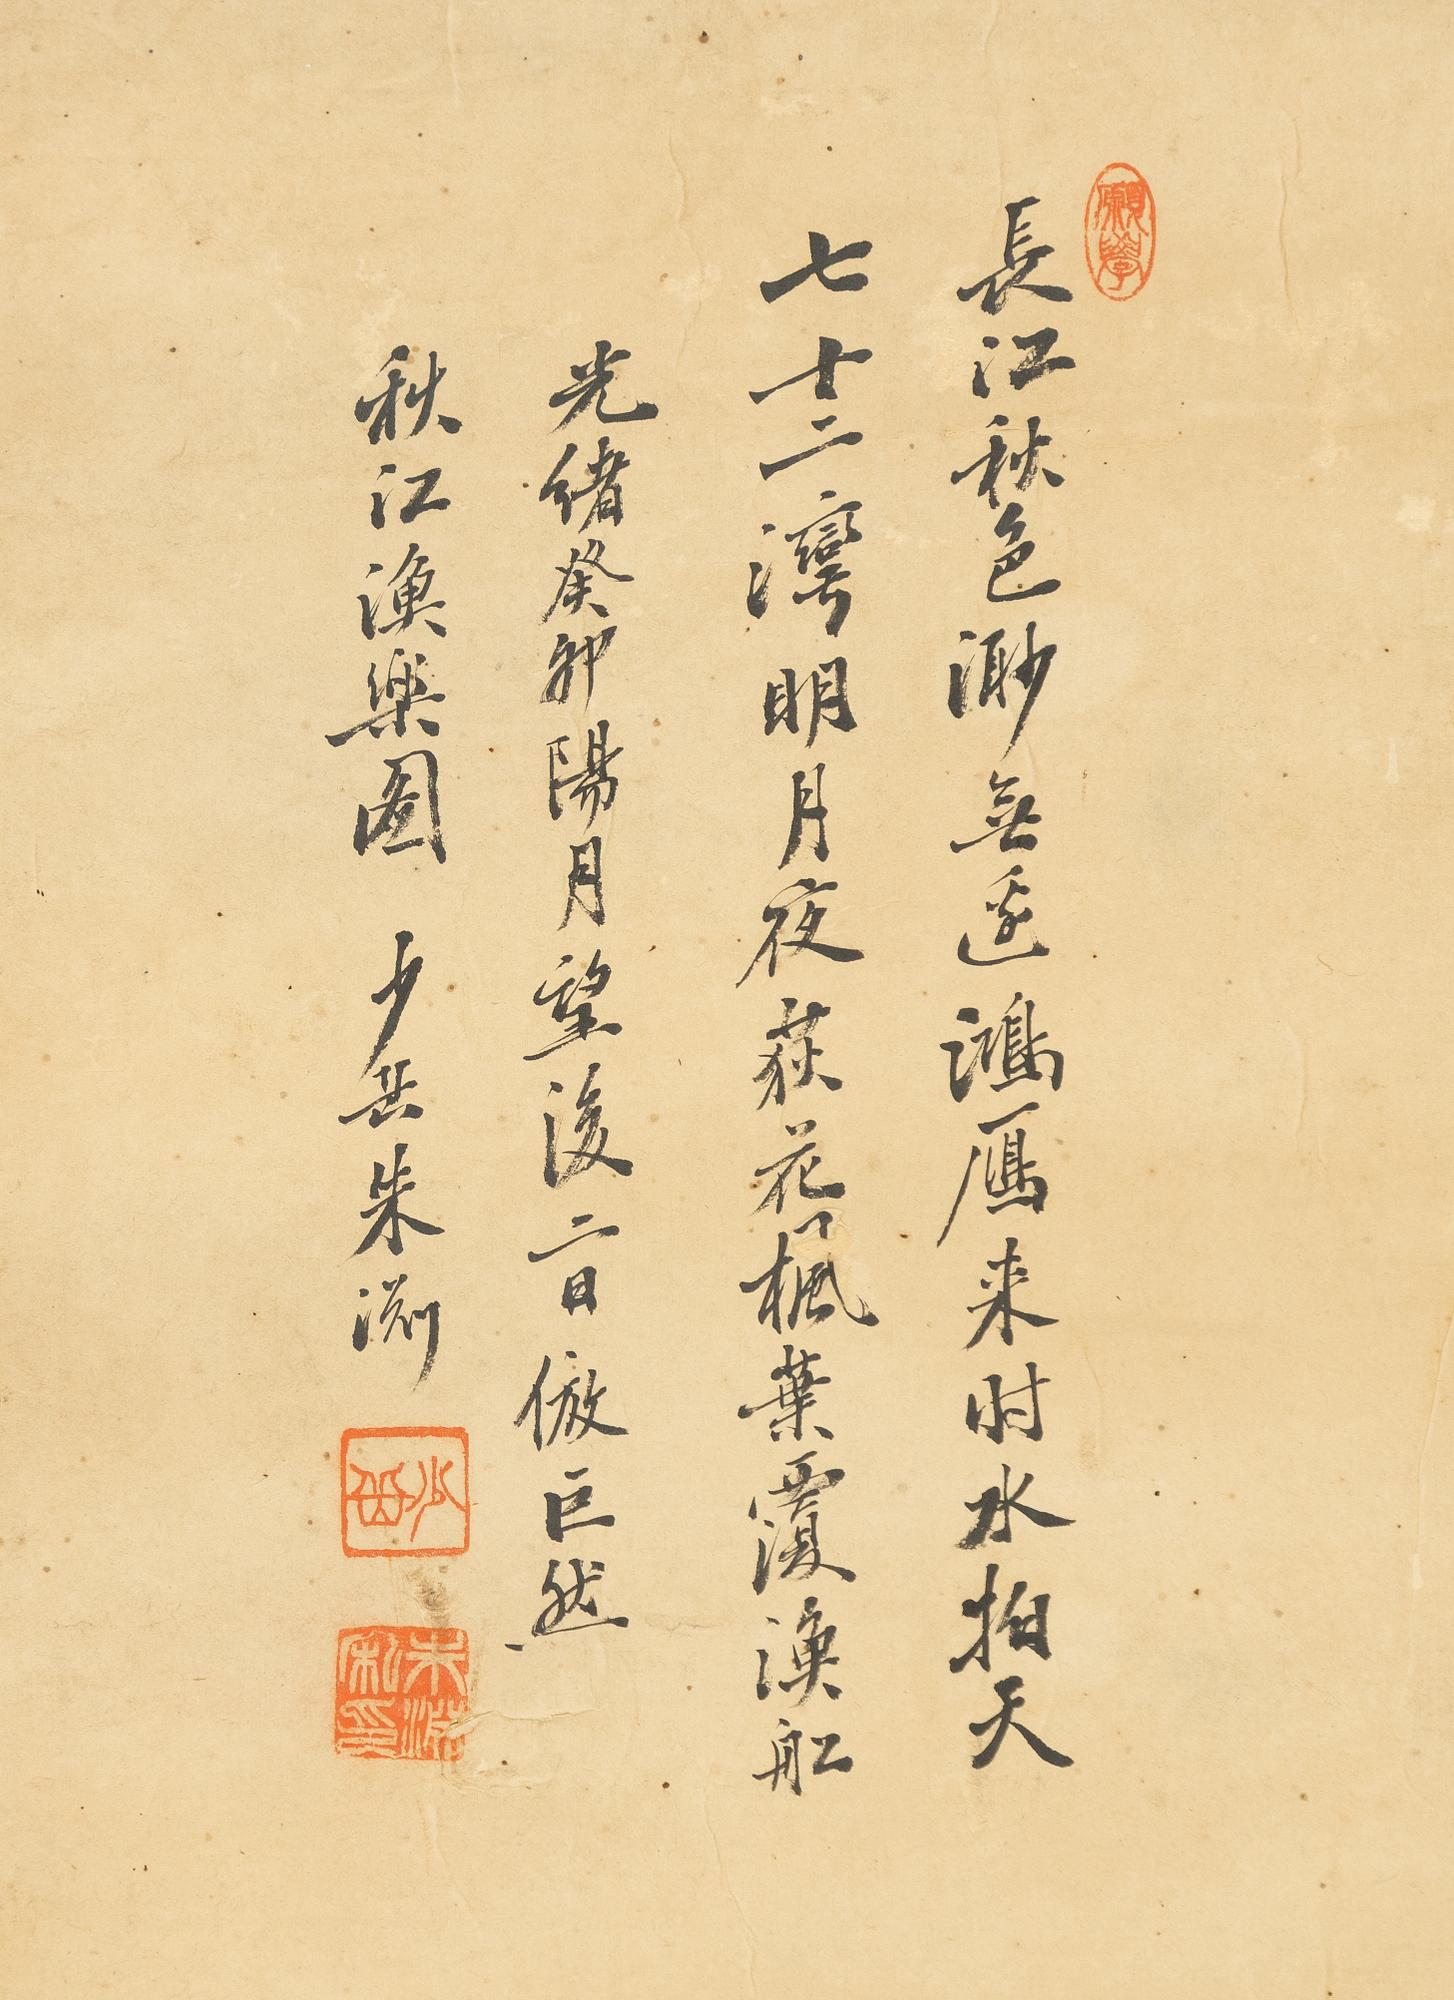 長江秋色渺無邊鴻雁来时水拍天
七十二灣明月夜荻花楓葉覆漁舩
光緒癸卯陽月望後二日倣巨然
秋江漁樂圖 少岳朱淵
願學
少岳